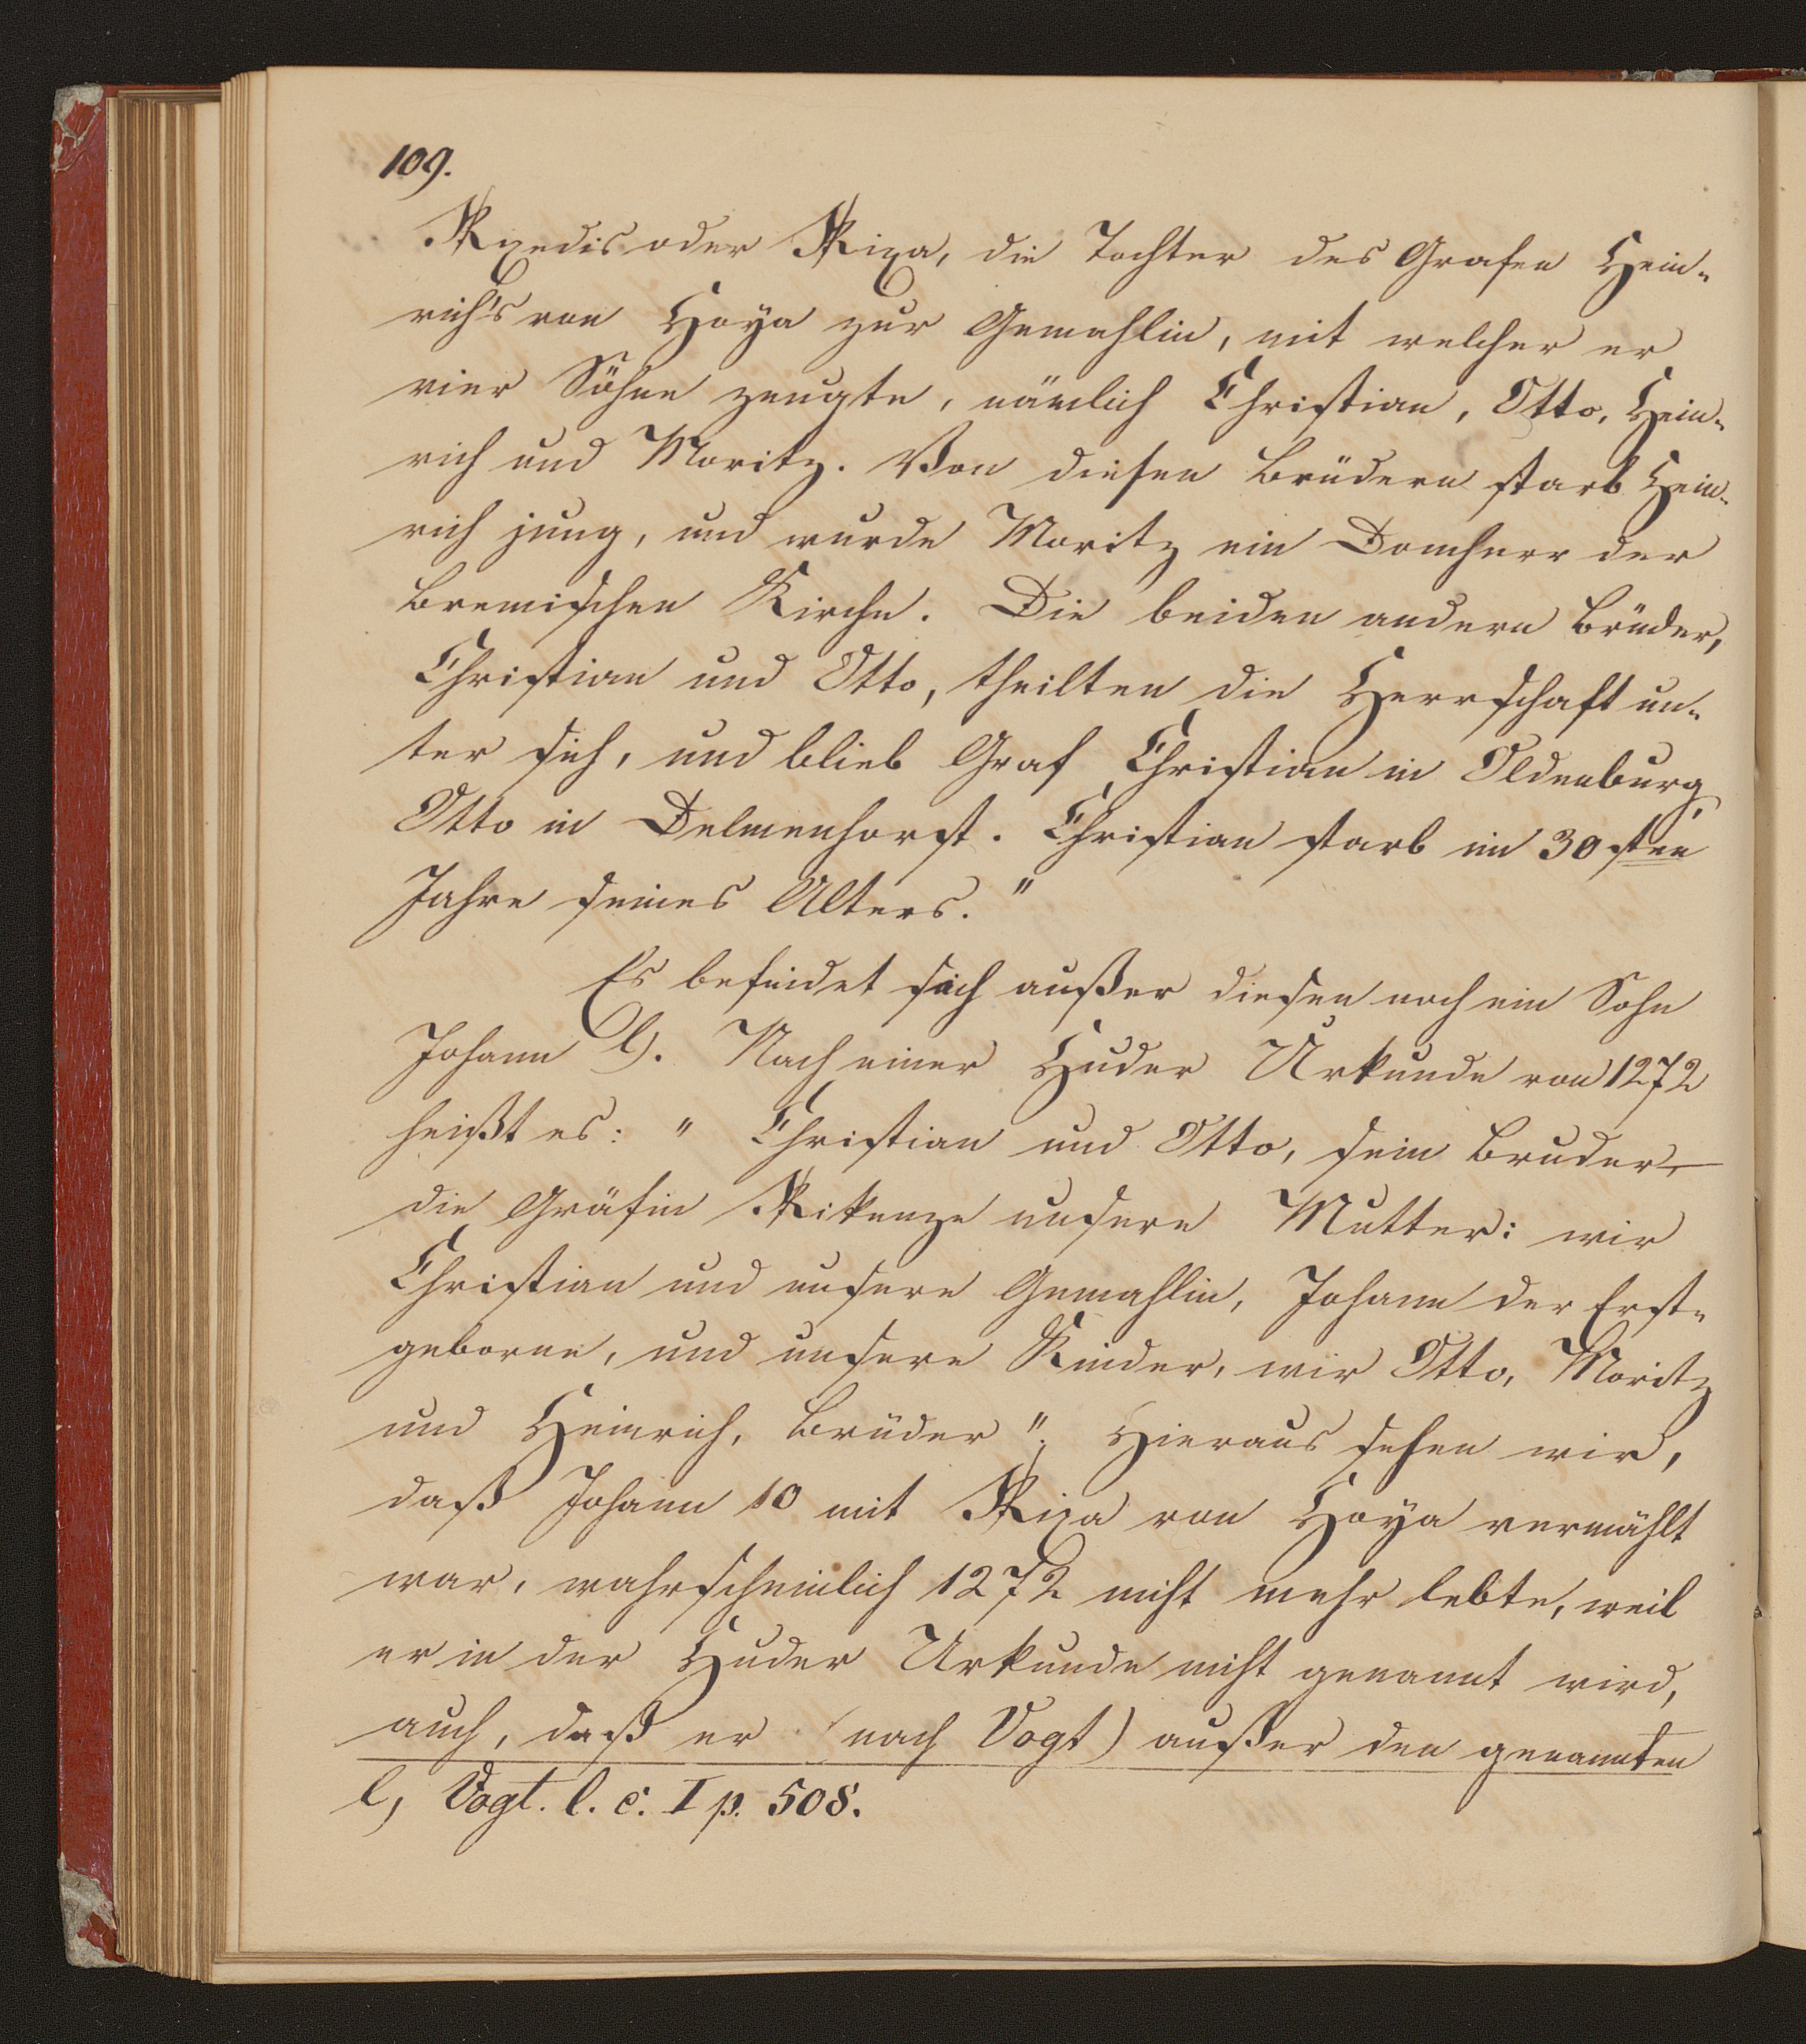 109.
Rixedis oder Rixa, die Tochter des Grafen Hein-
rich's von Hoÿa zur Gemahlin, mit welcher er
vier Söhne zeugte, nämlich Christian, Otto, Hein-
rich und Moritz. Von diesen Brüdern starb Hein-
rich jung, und wurde Moritz ein Domherr der
Bremischen Kirche. Die beiden andern Brüder,
Christian und Otto, theilten die Herrschaft un-
ter sich, und blieb Graf Christian in Oldenburg,
Otto in Delmenhorst. Christian starb im 30sten
Jahre seines Alters."
Es befindet sich außer diesen noch ein Sohn
Johann l). Nach einer Huder Urkunde von 1272
heißt es: " Christian und Otto, sein Bruder,
die Gräfin Rikenze unsere Mutter: wir
Christian und unsere Gemahlin, Johann der Erst-
geborne, und unsere Kinder, wir Otto, Moritz
und Heinrich, Brüder". Hieraus sehen wir,
daß Johann 10 mit Rixa von Hoÿa vermählt
war, wahrscheinlich 1272 nicht mehr lebte, weil
er in der Huder Urkunde nicht genannt wird,
auch, daß er (nach Vogt) außer den genannten
l) Vogt. l. c. I p. 508.